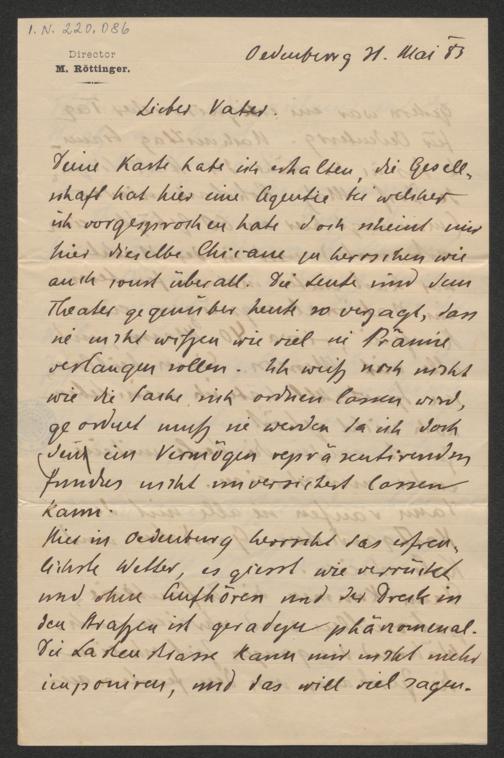 I. N. 220.086
Director
M. Röttinger.
Oedenburg 31. Mai 83
Lieber Vater.
Deine Karte habe ich erhalten, die Gesell-
schaft hat hier eine Agentie bei welcher
ich vorgesprochen habe doch scheint mir
hier dieselbe Chicane zu herrschen wie
auch sonst überall. Die Leute sind dem
Theater gegenüber heute so verzagt, dass
sie nicht wissen wie viel sie Prämie
verlangen sollen. Ich weiß noch nicht
wie die Sache sich ordnen lassen wird,
geordnet muß sie werden da ich doch
ein Vermögen repräsentirenden
Fundus nicht unversichert lassen
kann.
Hier in Oedenburg herrscht das erfreu-
lichste Wetter, es giesst wie verrückt
und ohne Aufhören und der Dreck in
den Straßen ist geradezu phänomenal.
Die Lastenstrasse kann mir nicht mehr
imponiren, und das will viel sagen.